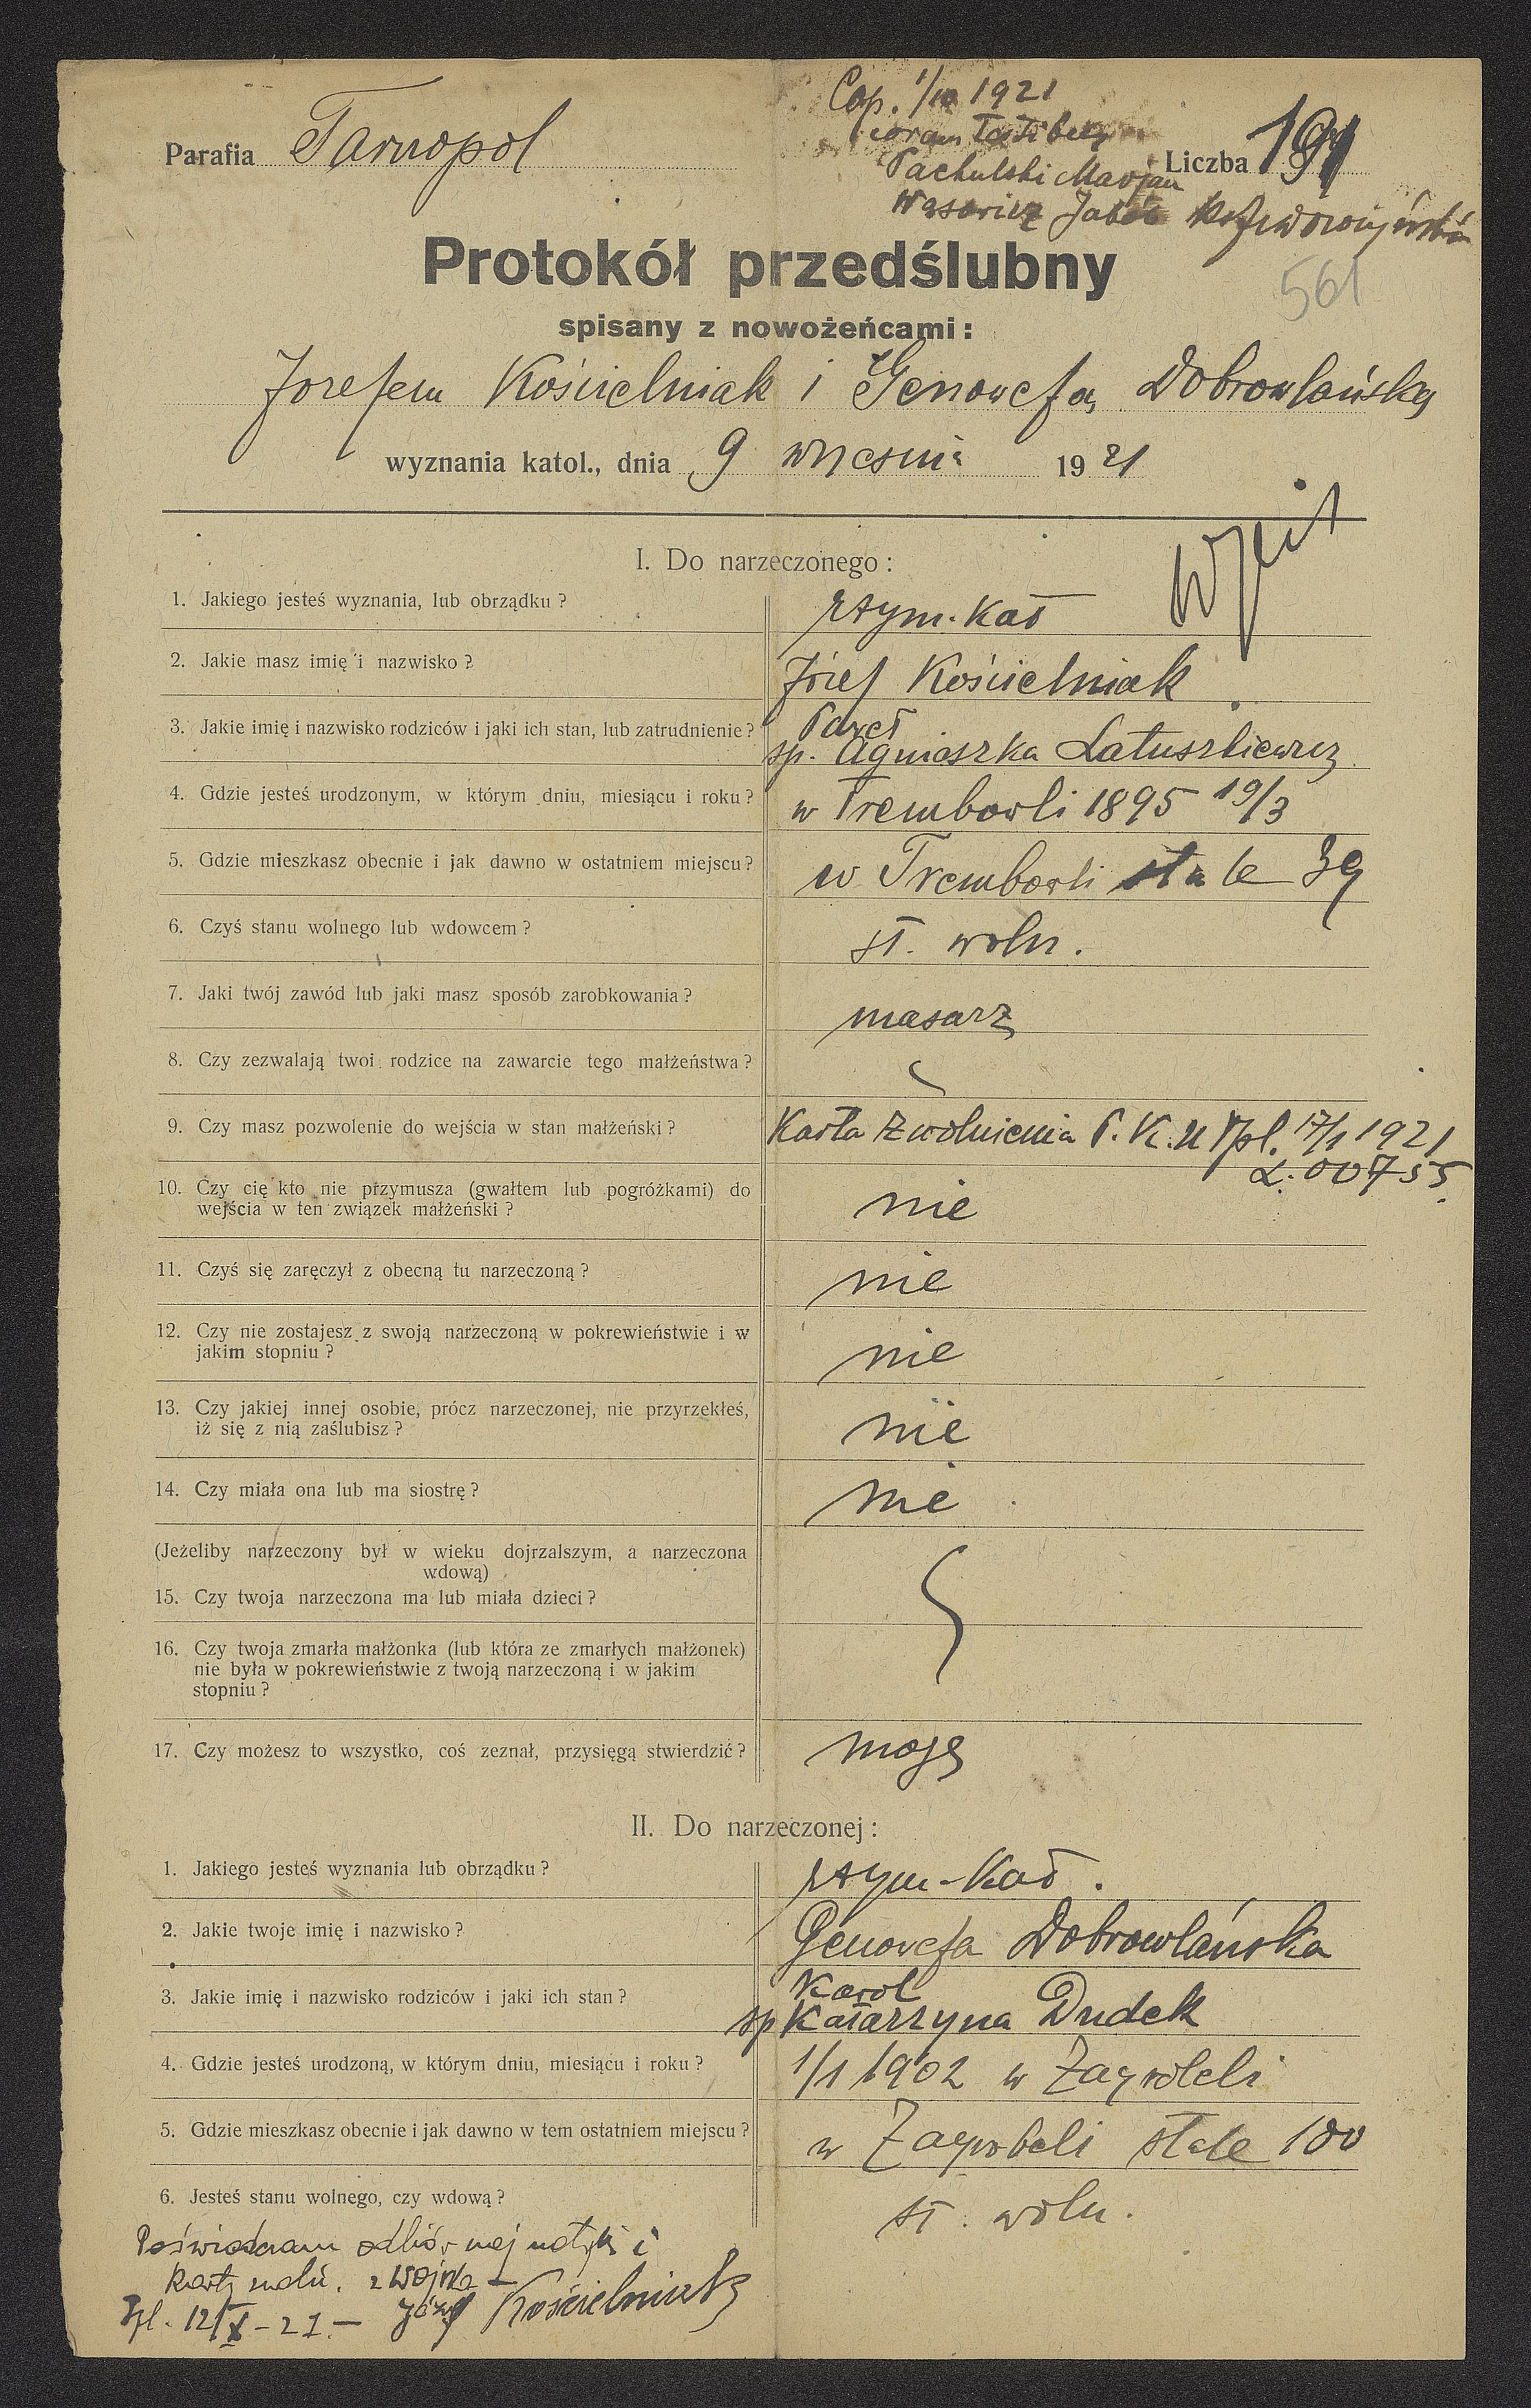 Cop. 1/10 1921
coram testibus
Parafia Tarnopol
Pachulski Marjan
Liczba 191
Wąsowicz
561
Protokół przedślubny
spisany z nowożeńcami:
Józefem Kościelniak i Genowefą Dobrowlańską
wyznania katol., dnia 9 września 1921
I. Do narzeczonego:
1. Jakiego jesteś wyznania, lub obrządku? rzym. kat
2. Jakie masz imię i nazwisko? Józef Kościelniak
3. Jakie imię i nazwisko rodziców i jaki ich stan, lub zatrudnienie? Paweł
sp. Agnieszka Latuszkiewicz
4. Gdzie jesteś urodzonym, w którym dniu, miesiącu i roku? w Trembowli 1895 19/3
5. Gdzie mieszkasz obecnie i jak dawno w ostatniem miejscu? w Trembowli stale 39
6. Czyś stanu wolnego lub wdowcem? st. woln.
7. Jaki twój zawód lub jaki masz sposób zarobkowania? masarz
8. Czy zezwalają twoi rodzice na zawarcie tego małżeństwa?
9. Czy masz pozwolenie do wejścia w stan małżeński? Karta zwolnienia P.K.U Tpl. 17/1 1921
L: 00755.
10. Czy cię kto nie przymusza (gwałtem lub pogróżkami) do
wejścia w ten związek małżeński? nie
11. Czyś się zaręczył z obecną tu narzeczoną? nie
12. Czy nie zostajesz z swoją narzeczoną w pokrewieństwie i w
jakim stopniu? nie
13. Czy jakiej innej osobie, prócz narzeczonej, nie przyrzekłeś,
iż się z nią zaślubisz? nie
14. Czy miała ona lub ma siostrę? nie
(Jeżeliby narzeczony był w wieku dojrzalszym, a narzeczona
wdową)
15. Czy twoja narzeczona ma lub miała dzieci?
16. Czy twoja zmarła małżonka (lub która ze zmarłych małżonek)
nie była w pokrewieństwie z twoją narzeczoną i w jakim
stopniu?
17. Czy możesz to wszystko, coś zeznał, przysięgą stwierdzić? mogę
II. Do narzeczonej:
1. Jakiego jesteś wyznania lub obrządku? rzym-kat.
2. Jakie twoje imię i nazwisko? Genowefa Dobrowlańska
3. Jakie imię i nazwisko rodziców i jaki ich stan? Karol
sp Katarzyna Dudek
4. Gdzie jesteś urodzoną, w którym dniu, miesiącu i roku? 1/1 1902 w Zagrobeli
5. Gdzie mieszkasz obecnie i jak dawno w tem ostatniem miejscu? w Zagrobeli stale 100
6. Jesteś stanu wolnego, czy wdową? st. woln.
Poświadczam odbiór mej metryki i
karty zwoln. z wojska –
Tpl. 12/X – 21. – Józef Kościelniak